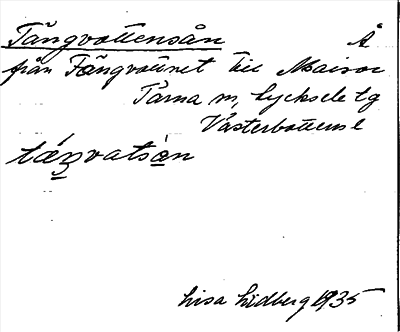 Tängvattensån Å
från Tängvattnet till Maisor
Tärna sn, Lycksele lg
Västerbottens l
Lisa Lidberg 1935